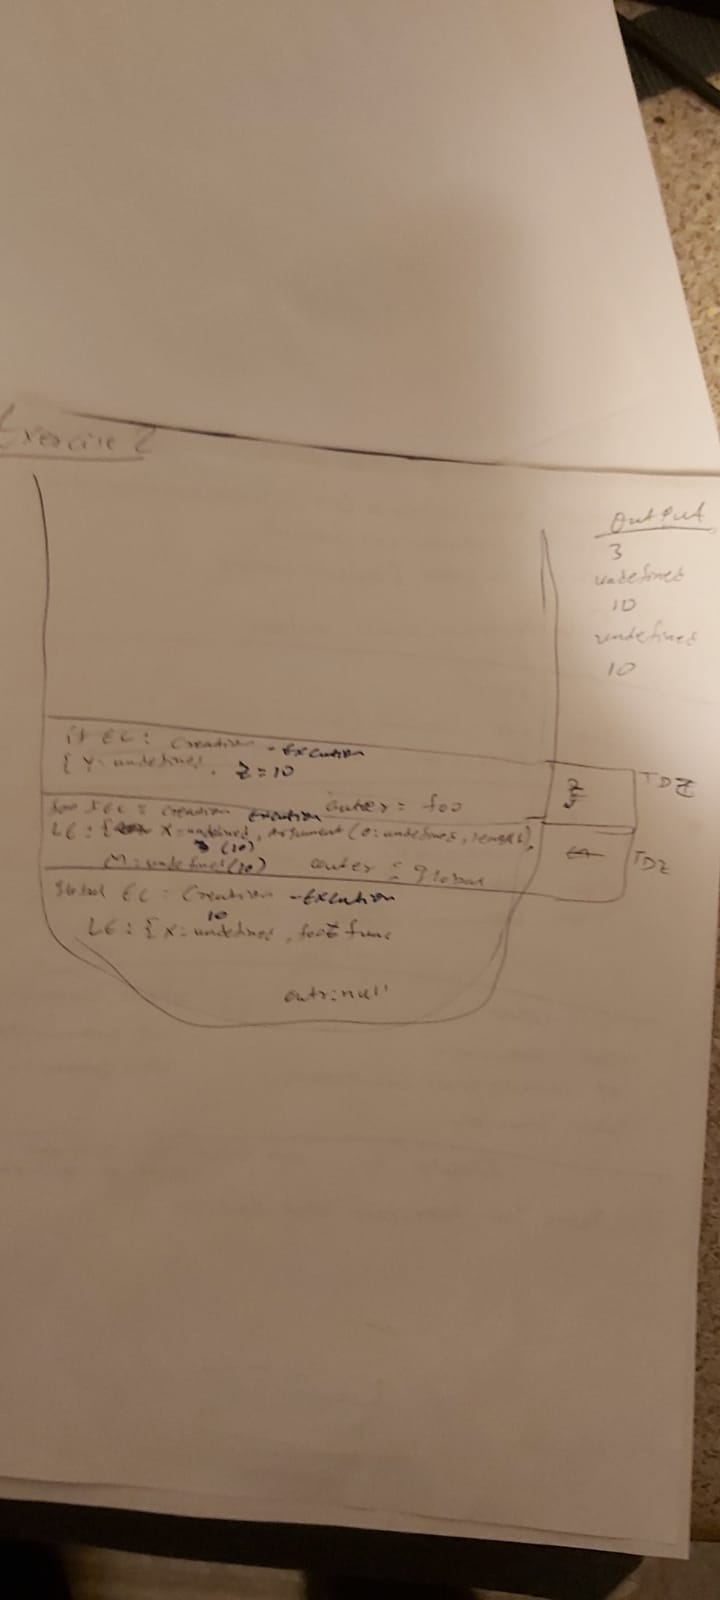 Exercise 2
Output
3
undefined
10
undefined
10
if EC: Creation - Execution
{ Y: undefined, Z=10
outer= foo
TDZ
Z
EC = Creation Execution
LE: { X=undefined, Argument (0: undefined, length:
3 (10)
M: undefined (10) outer: global
TDZ
global EC: Creation - Execution
10
LE: { X: undefined, foo func
outr: null